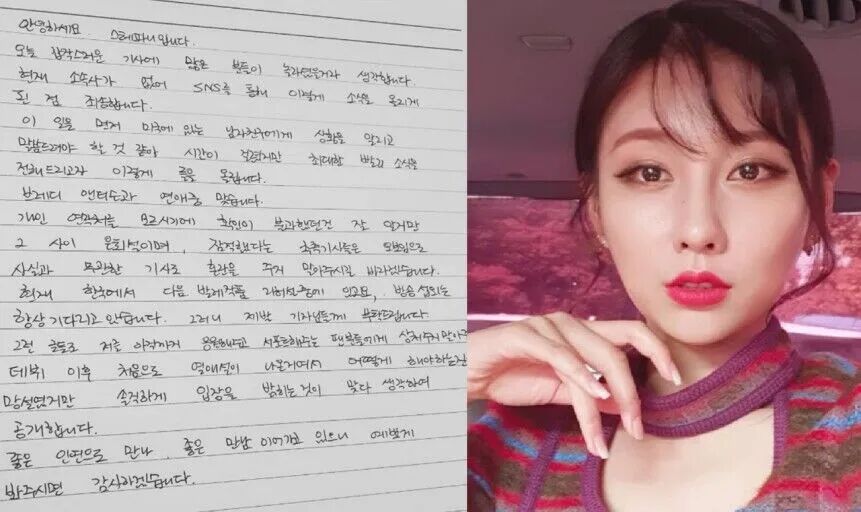 안녕하세요 스테파니입니다.
오늘 갑작스러운 기사에 많은 분들이 놀라셨을거라 생각합니다.
현재 소속사가 없어 SNS를 통해 이렇게 소식을 올리게
된 점 죄송합니다.
이 일을 먼저 미국에 있는 남자친구에게 상황을 알리고
말씀드려야 할 것 같아 시간이 걸렸지만 최대한 빨리 소식을
전해드리고자 이렇게 글을 올립니다.
브레디 앤더슨과 연애중 맞습니다.
개인 연락처를 모르시기에 확인이 불가했던건 잘 알지만
그 사이 운회석이며, 잠적했다는 추측기사들은
사실과 무관한 기사로 혼란을 주지 말아주시길 바라겠습니다.
현재 한국에서 다음 발레작품 리허설중에 있고요, 방송 섭외는
항상 기다리고 있습니다. 그러니 제발 기자님들께 부탁드립니다
그런 글들로 저를 이제까지 응원해주고 서포트해주는 팬분들에게 상처주지 말아주
데뷔 이후 처음으로 열애설이 나온거여서 어떻게 해야하는지
망설였지만 솔직하게 입장을 밝히는것이 맞다 생각하여
공개합니다.
좋은 인연으로 만나, 좋은 만남 이어가고 있으니 예쁘게
봐주시면 감사하겠습니다.